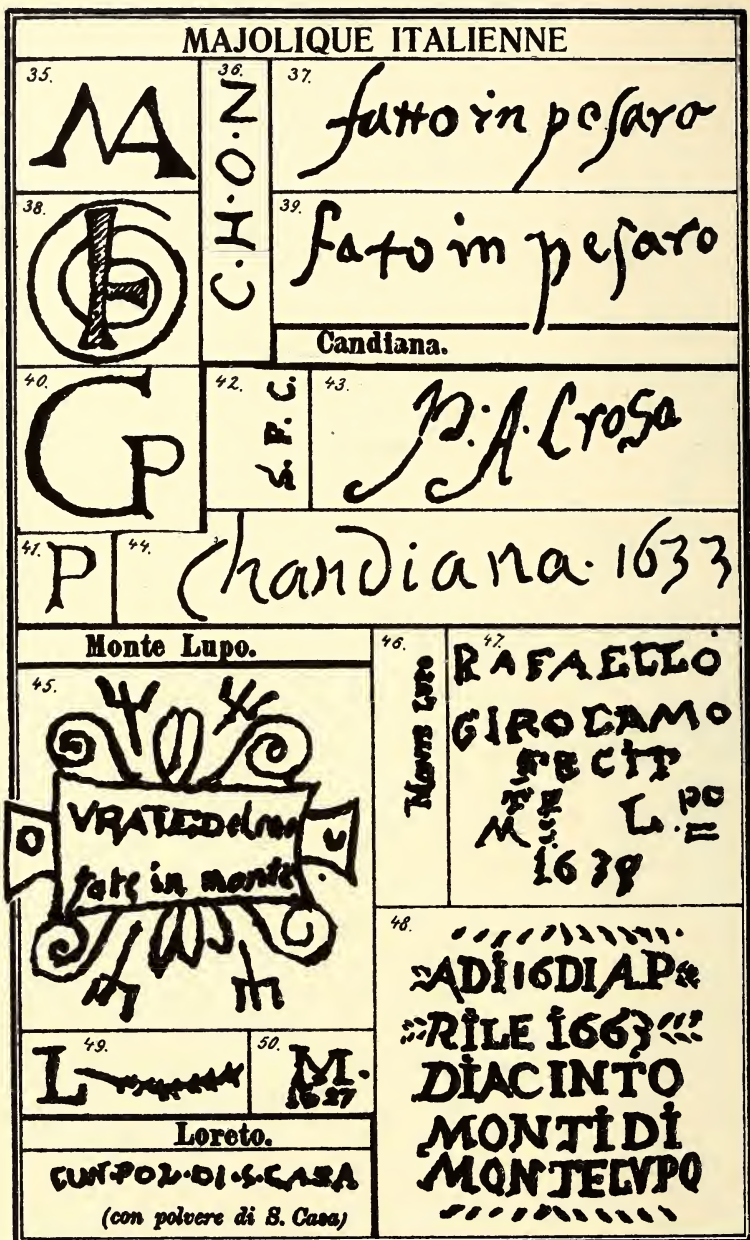 MAJOLIQUE ITALIENNE
35.
MA
36.
C.H.O.N
37.
fatto in pesaro
38.
39.
fato in pesaro
Candiana.
40.
GP
42.
S.F.C.
43.
P.A. Crosa
41.
P
44.
Chandiana. 1633
Monte Lupo.
45.
VRATE:Del
fate in monte
46.
MONTE LUPO
47.
RAFAELLO
GIROLAMO
FECIT
M TE
L. PO
1639
48.
ADI16DIAP
RILE 1663
DIACINTO
MONTIDI
MONTELVPO
49.
L
50.
M.
1627
Loreto.
CUN.POL.DI.S.CASA
(con polvere di S. Casa)